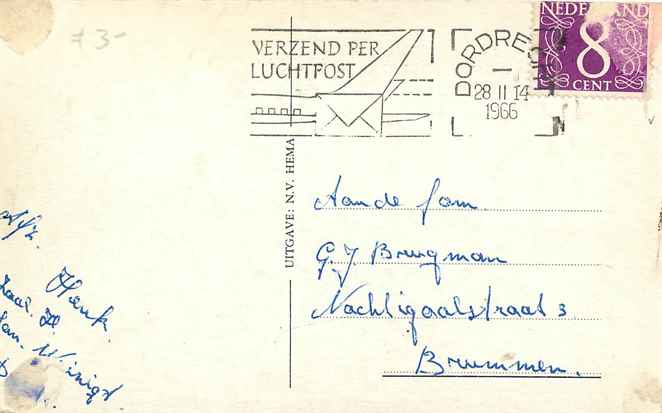 ≠ 3-
VERZEND PER
LUCHTPOST
DORDRE
28 II 14
1966
N
NEDERLAND
8
CENT
UITGAVE: N.V. HEMA
Aan de fam
G.J Brugman
Nachtigaalstraat 3
Brummen.
Afz.
Henk